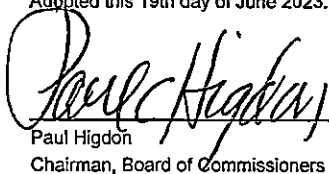 Adopted this 19th day of June 2023.
Paul C Higdon
Paul Higdon
Chairman, Board of Commissioners